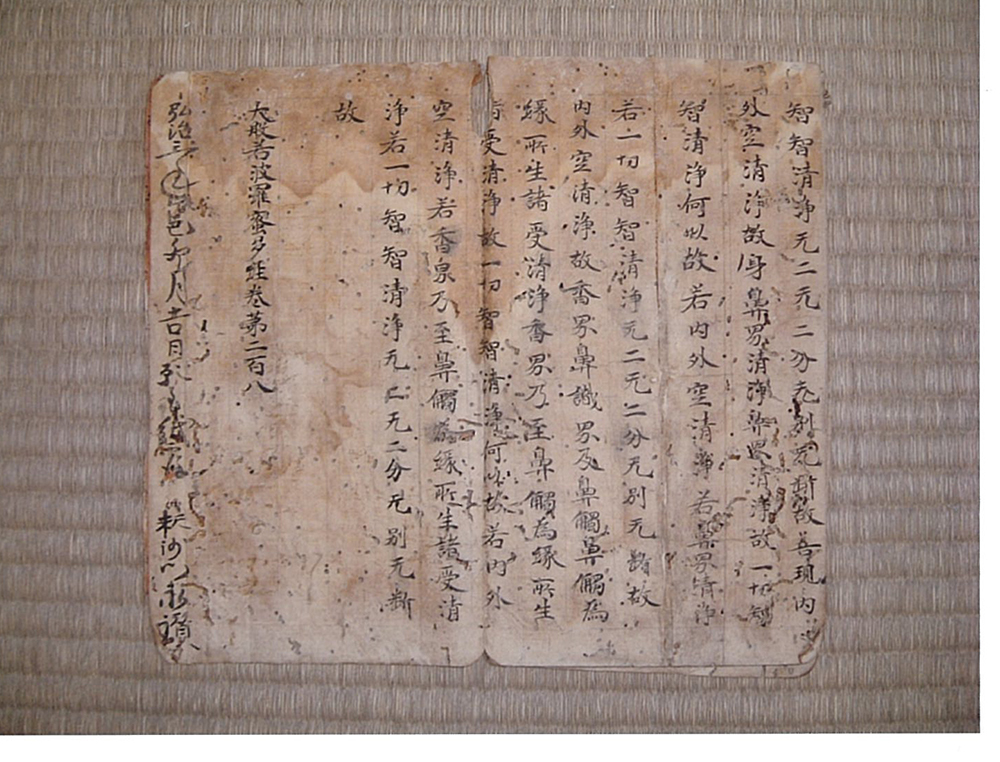 智智清淨无二无二分无別无断故善現内
外空清淨故身鼻界清淨鼻界清淨故一切智
智清淨何以故若内外空清淨若鼻界清淨
若一切智智清淨无二无二分无別无断故
内外空清淨故香界鼻識界及鼻觸鼻觸為
縁所生諸受清淨香界乃至鼻觸為縁所生
諸受清淨故一切智智清淨何以故若内外
空清淨若香界乃至鼻觸為縁所生諸受清
淨若一切智智清淨无二无二分无別无断
故
大般若波羅蜜多経巻第二百八
弘治三 卯月吉日